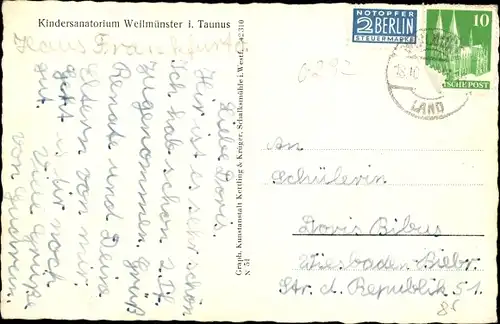 Kindersanatorium Weilmünster i. Taunus
Haus Frankfurt
Liebe Doris.
Hier ist es sehr schön
Ich hab schon 2 Pf.
zugenommen. Grüß
Renate und Deine
Eltern von mir.
Geht es ihr noch
gut. Viele Grüße
von Gudrun.
Graph. Kunstanstalt Kettling & Krüger, Schalksmühle i. Westf.
N 51
NOTOPFER
2 BERLIN
STEUERMARKE
10
DEUTSCHE POST
LAND
0292
An
Schülerin
Doris Bibus
Wiesbaden. Biebr.
Str. d. Republik 51.